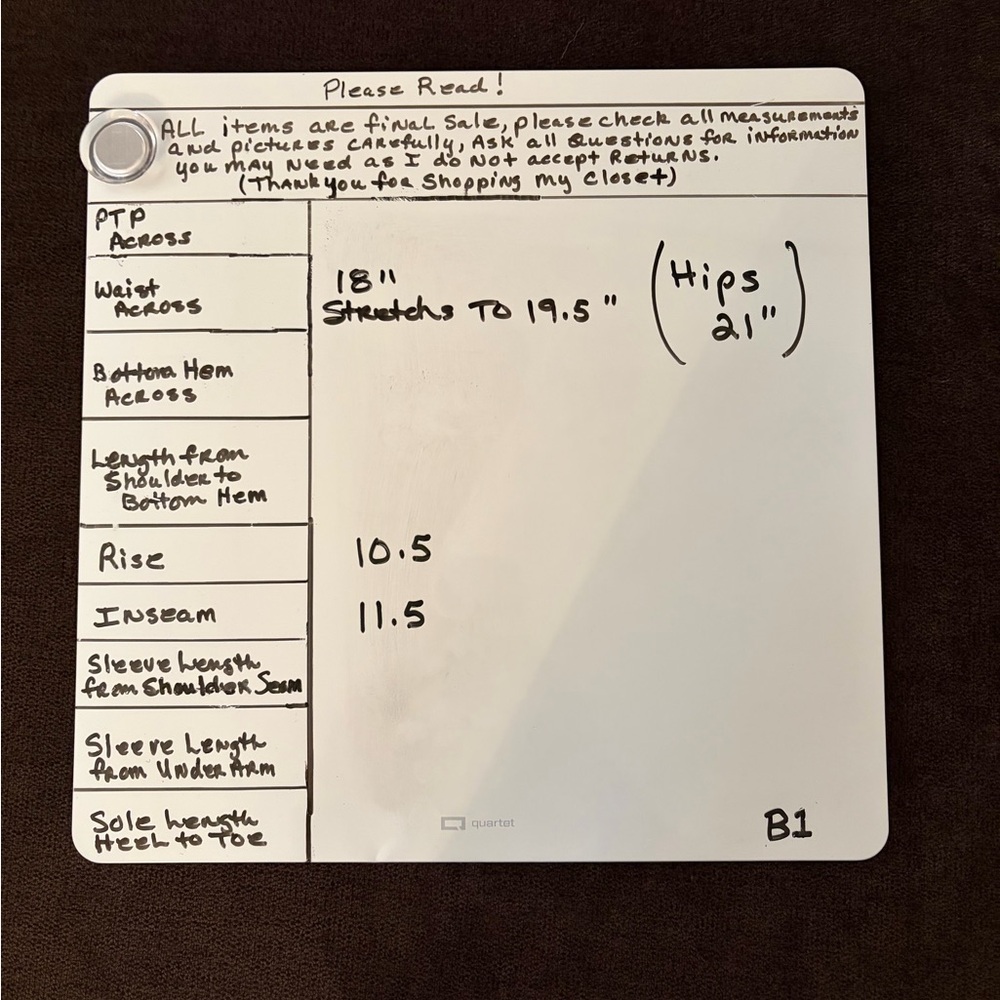 Please Read!
ALL items are final Sale, please check all measurements
and pictures carefully, Ask all Questions for information
you may Need as I do Not accept Returns.
(Thank you for Shopping my Closet)
PTP
Across
Waist
Across
18"
Stretchs To 19.5"
(Hips
21")
Bottom Hem
Across
Length from
Shoulder to
Bottom Hem
Rise
10.5
Inseam
11.5
Sleeve Length
from Shoulder Seam
Sleeve Length
from Under Arm
Sole Length
Heel to Toe
quartet
B1